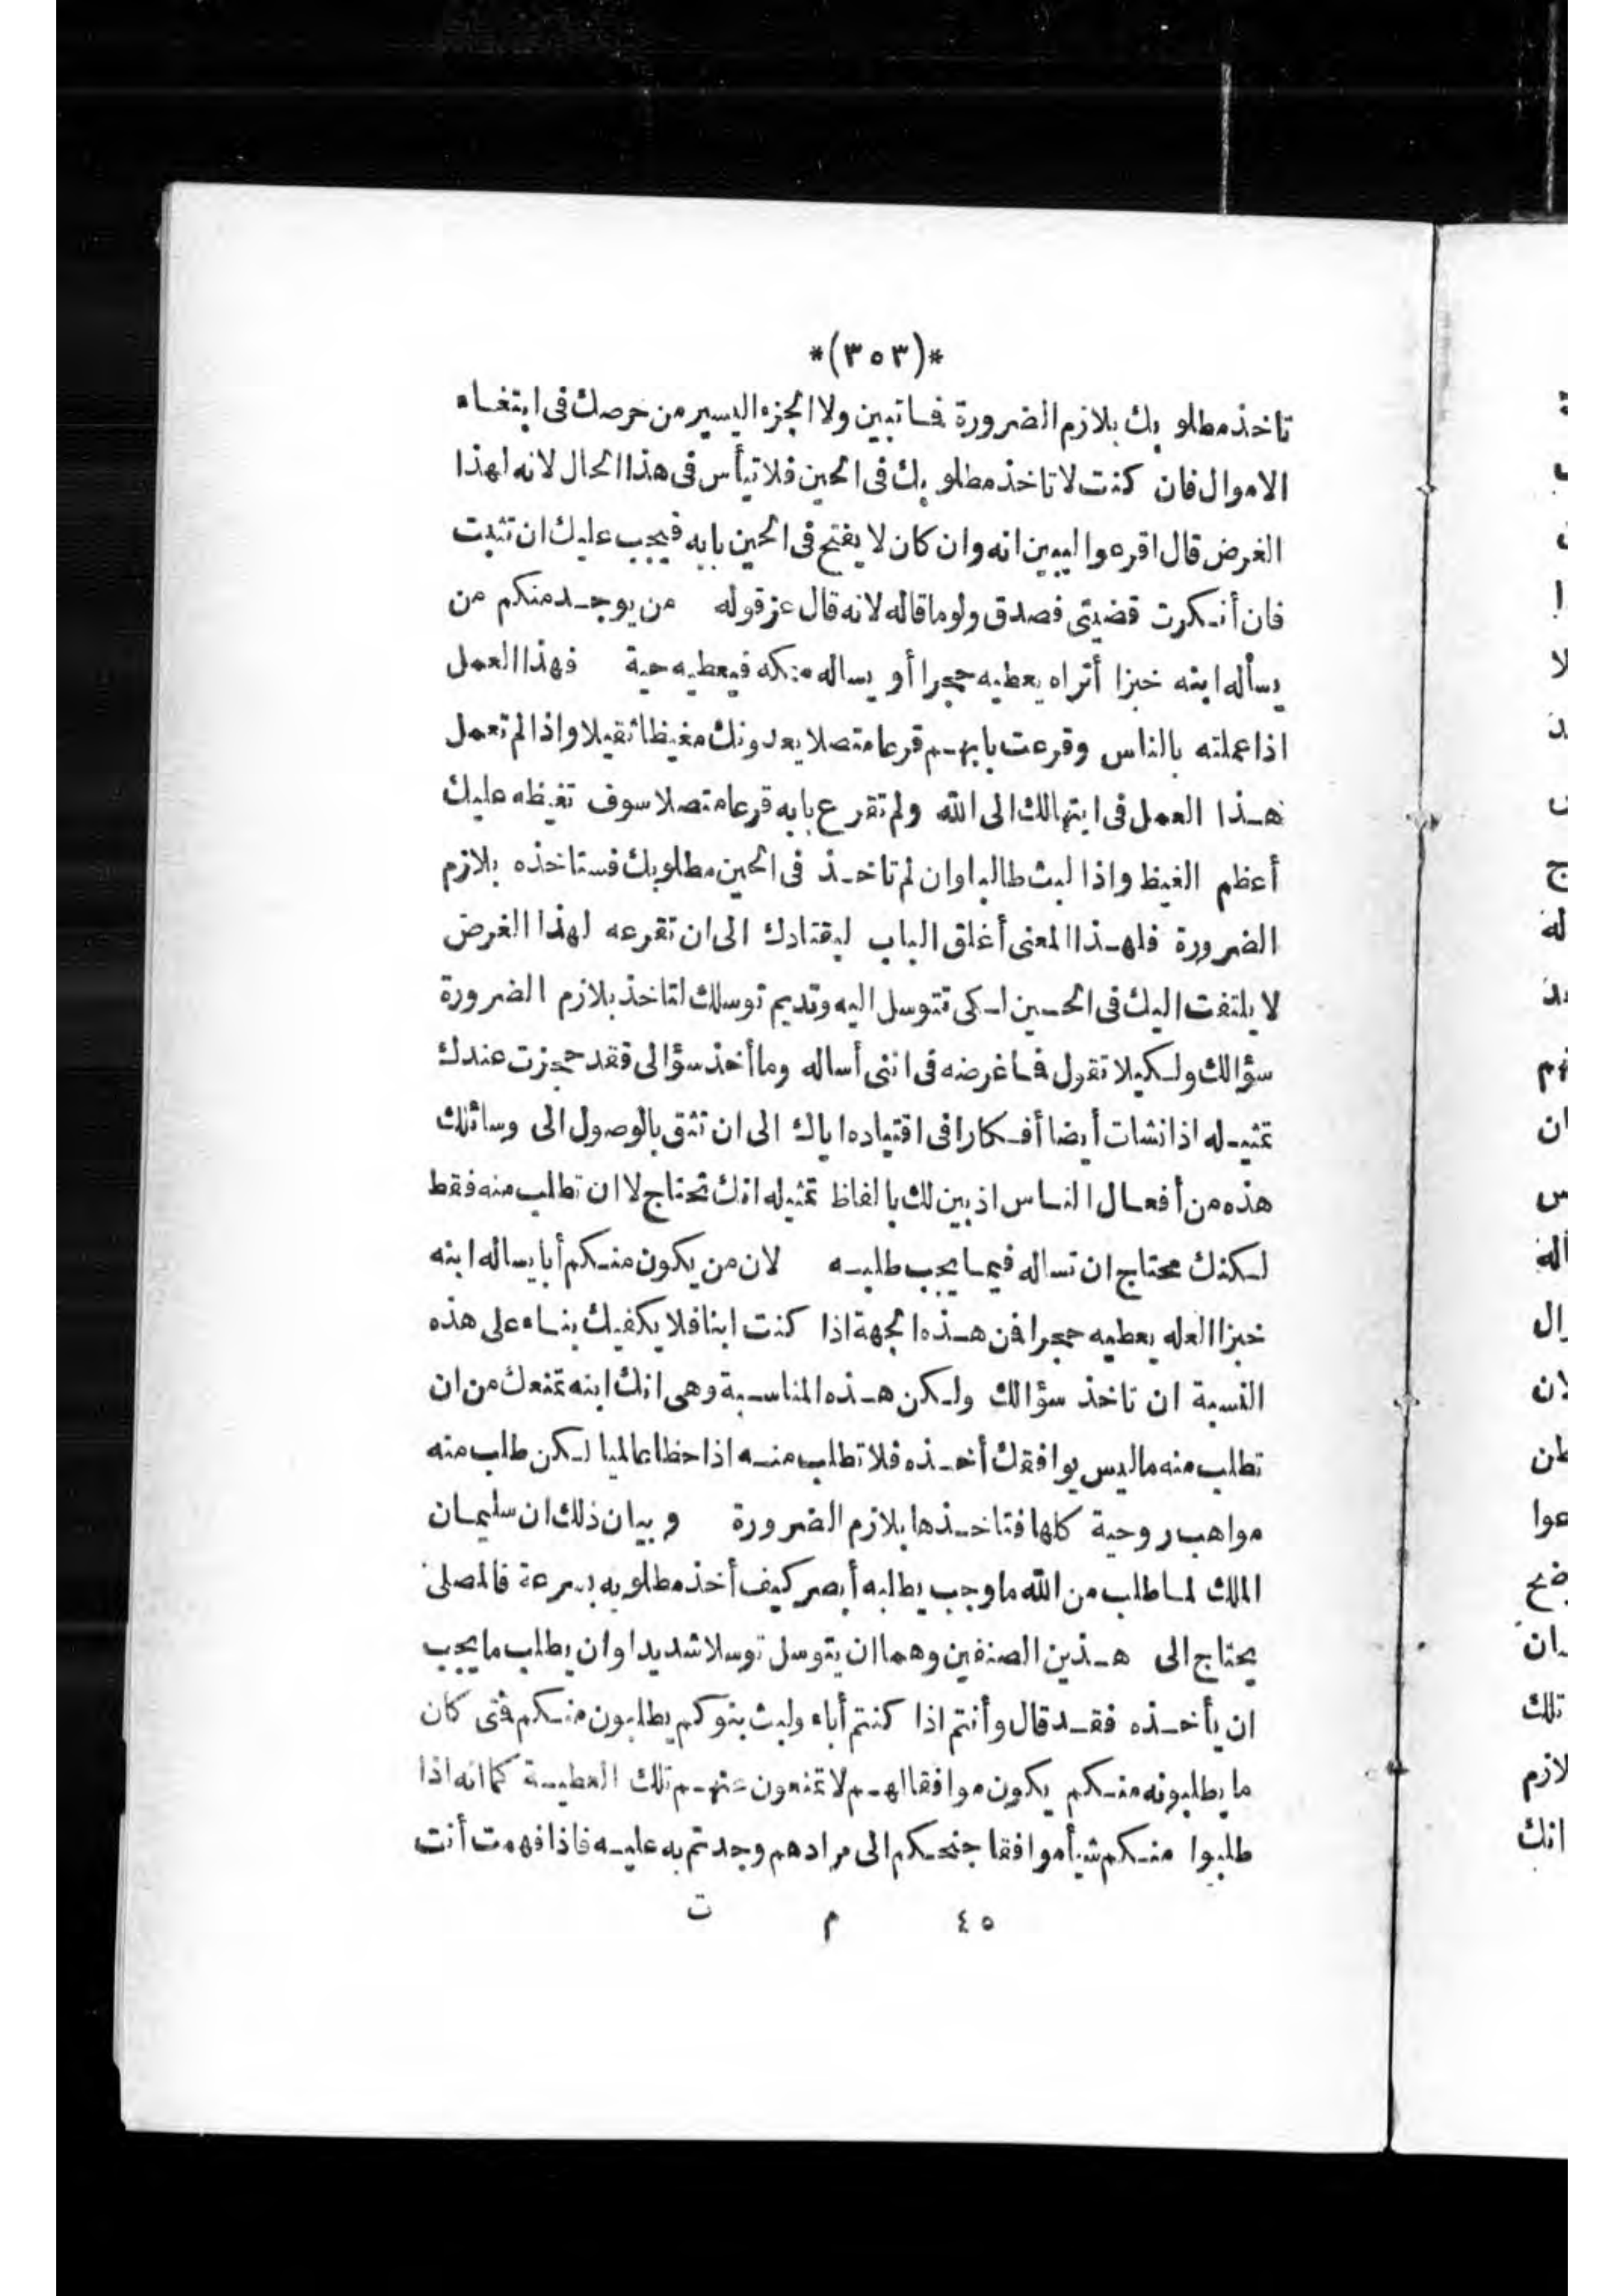 *(٣٥٣)*
تاخذ مطلوبك بلازم الضرورة فما تبين ولا الجزء اليسير من حرصك فى ابتغاء
الاموال فان كنت لا تاخذ مطلوبك فى الحين فلا تيأس فى هذا الحال لانه لهذا
الغرض قال اقرعوا ليبين انه وان كان لا يفتح فى الحين بابه فيجب عليك ان تثبت
فان أنكرت قضيتى فصدق ولو ما قاله لانه قال عز قوله من يوجد منكم من
يسأله ابنه خبزا أتراه يعطيه حجرا أو يساله سمكه فيعطيه حية فهذا العمل
اذا عملته بالناس وقرعت بابهم قرعا متصلا يعدونك مغيظا ثقيلا واذا لم تعمل
هذا العمل فى ابتهالك الى الله ولم تقرع بابه قرعا متصلا سوف تغيظه عليك
أعظم الغيظ واذا لبث طالبا وان لم تاخذ فى الحين مطلوبك فستاخذه بلازم
الضرورة فلهذا المعنى أغلق الباب ليقتادك الى ان تقرعه لهذا الغرض
لا يلتفت اليك فى الحين لكى تتوسل اليه وتديم توسلك لتاخذ بلازم الضرورة
سؤالك ولكيلا تقول فما غرضه فى اننى أساله وما أخذ سؤالى فقد حجزت عندك
تمثيله اذ انشات أيضا أفكارا فى اقتياده اياك الى ان تثق بالوصول الى وسائلك
هذه من أفعال الناس اذ بين لك بالفاظ تمثيله انك تحتاج لا ان تطلب منه فقط
لكنك محتاج ان تساله فيما يجب طلبه لان من يكون منكم أبا يساله ابنه
خبزا العله يعطيه حجرا فمن هذه الجهة اذا كنت ابنا فلا يكفيك بناء على هذه
النسبة ان تاخذ سؤالك ولكن هذه المناسبة وهى انك ابنه تمنعك من ان
تطلب منه ما ليس يوافقك أخذه فلا تطلب منه اذا حظا عالميا لكن طلب منه
مواهب روحية كلها فتاخذها بلازم الضرورة وبيان ذلك ان سليمان
الملك لما طلب من الله ما وجب يطلبه أبصر كيف أخذ مطلوبه بسرعة فالمصلى
يحتاج الى هذين الصنفين وهما ان يتوسل توسلا شديدا وان يطلب ما يجب
ان يأخذه فقد قال وأنتم اذا كنتم أباء ولبث بنوكم يطلبون منكم فتى كان
ما يطلبونه منكم يكون موافقا لهم لا تمنعون عنهم تلك العطية كما انه اذا
طلبوا منكم شيأ موافقا جنحكم الى مرادهم وجدتم به عليه فاذا فهمت أنت
٤٥ م ت